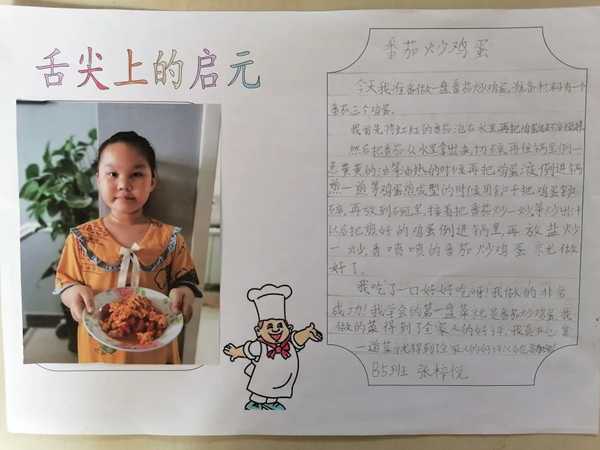 舌尖上的启元
番茄炒鸡蛋
今天我准备做一盘番茄炒鸡蛋,准备材料有一个
番茄三个鸡蛋。
我首先将红红的番茄泡在水里,再把鸡蛋
然后把番茄从水里拿出来,切成,再往锅里倒一
点黄黄的油等油热的时候再把鸡蛋液倒进锅
煎一煎等鸡蛋煎成型的时候用铲子把鸡蛋
碎,再放到碗里,接着把番茄炒一炒,等炒出汁
以后把煎好的鸡蛋倒进锅里,再放盐炒
一炒,香喷喷的番茄炒鸡蛋就做
好了。
我吃了一口好好吃呀!我做的非常
成功!我学会的第一盘菜就是番茄炒鸡蛋,我
做的菜得到了全家人的好评,我真开心,第
一道菜就得到了全家人的好评
B5班 张梓悦